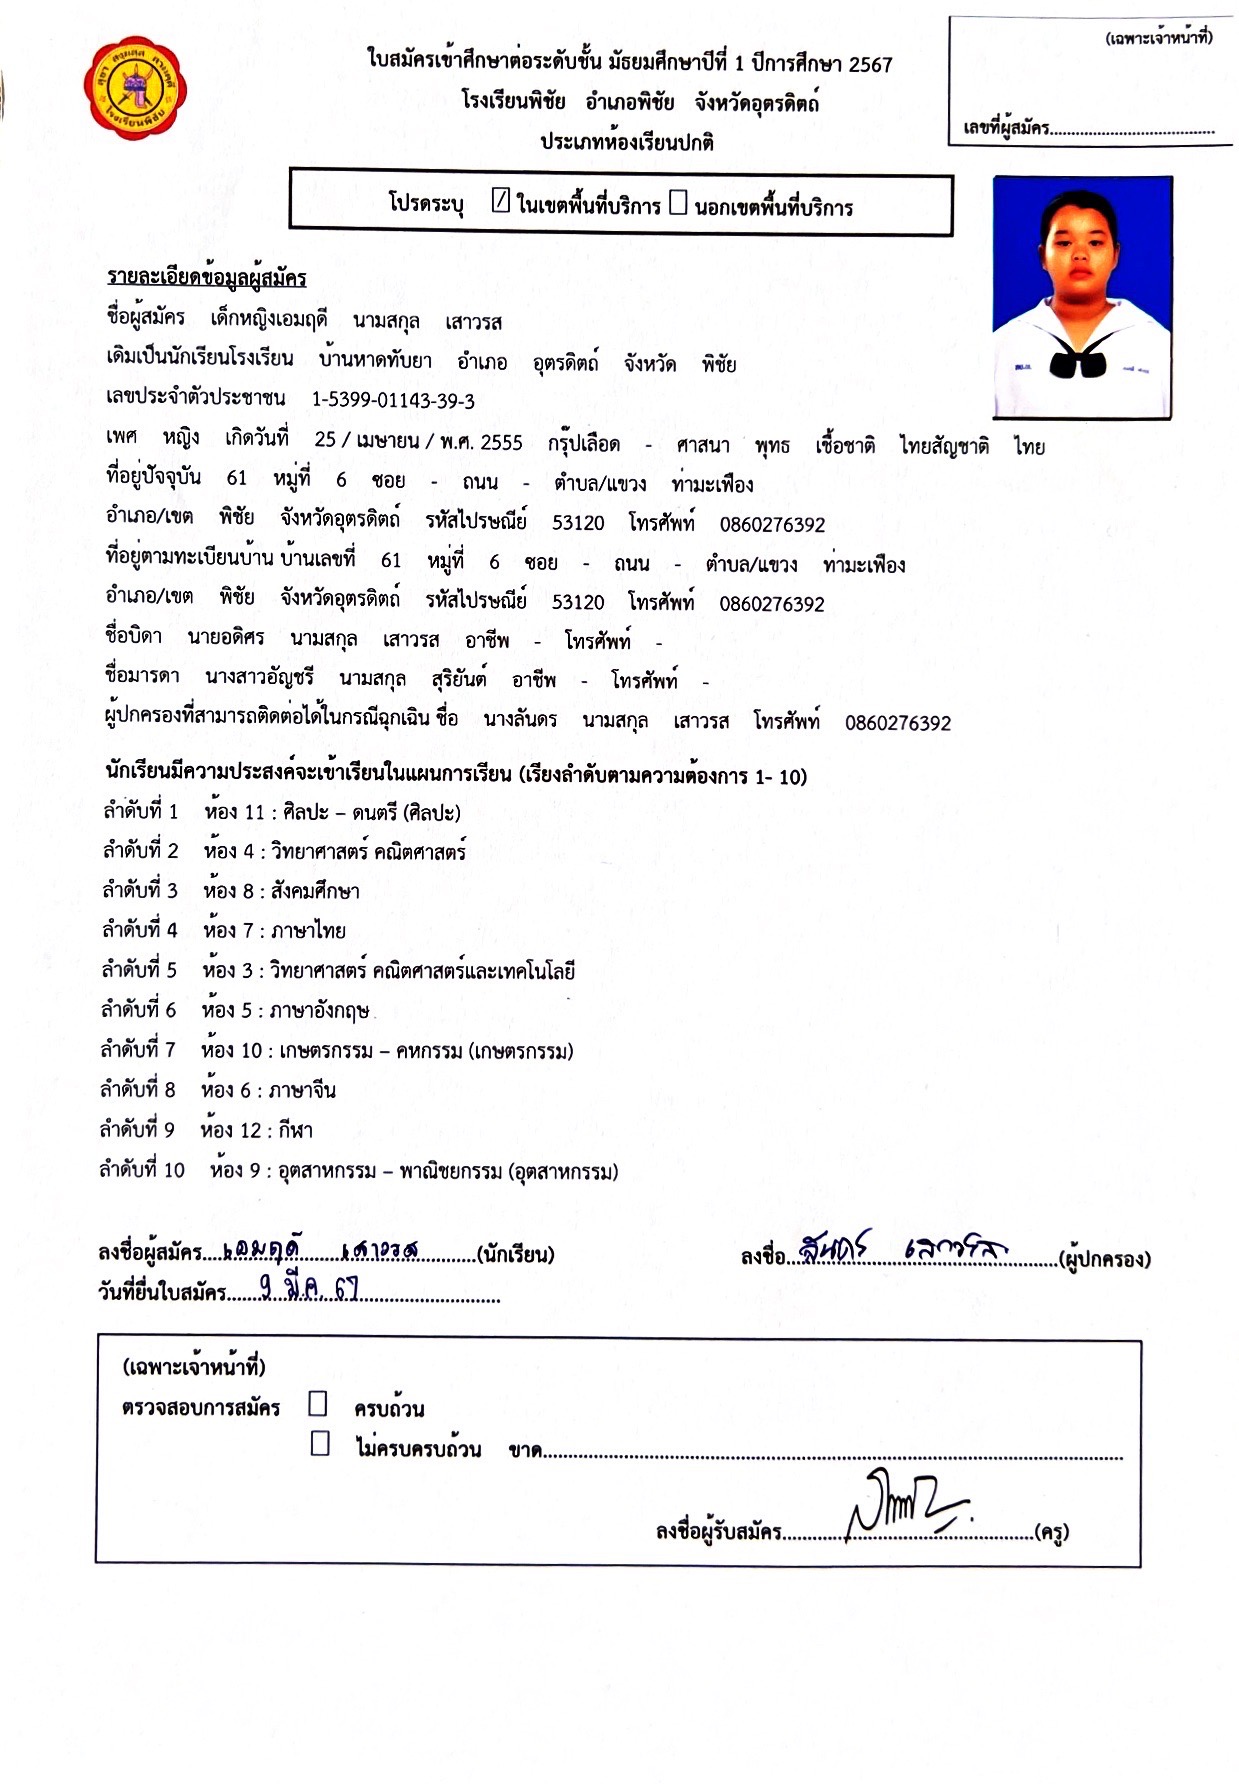 (เฉพาะเจ้าหน้าที่)
เลขที่ผู้สมัคร........................................
ใบสมัครเข้าศึกษาต่อระดับชั้น มัธยมศึกษาปีที่ 1 ปีการศึกษา 2567
โรงเรียนพิชัย อำเภอพิชัย จังหวัดอุตรดิตถ์
ประเภทห้องเรียนปกติ
โรงเรียนพิชัย
โปรดระบุ ☑ ในเขตพื้นที่บริการ ☐ นอกเขตพื้นที่บริการ
รายละเอียดข้อมูลผู้สมัคร
ชื่อผู้สมัคร เด็กหญิงเอมฤดี นามสกุล เสาวรส
เดิมเป็นนักเรียนโรงเรียน บ้านหาดทับยา อำเภอ อุตรดิตถ์ จังหวัด พิชัย
เลขประจำตัวประชาชน 1-5399-01143-39-3
เพศ หญิง เกิดวันที่ 25 / เมษายน / พ.ศ. 2555 กรุ๊ปเลือด - ศาสนา พุทธ เชื้อชาติ ไทยสัญชาติ ไทย
ที่อยู่ปัจจุบัน 61 หมู่ที่ 6 ซอย - ถนน - ตำบล/แขวง ท่ามะเฟือง
อำเภอ/เขต พิชัย จังหวัดอุตรดิตถ์ รหัสไปรษณีย์ 53120 โทรศัพท์ 0860276392
ที่อยู่ตามทะเบียนบ้าน บ้านเลขที่ 61 หมู่ที่ 6 ซอย - ถนน - ตำบล/แขวง ท่ามะเฟือง
อำเภอ/เขต พิชัย จังหวัดอุตรดิตถ์ รหัสไปรษณีย์ 53120 โทรศัพท์ 0860276392
ชื่อบิดา นายอดิศร นามสกุล เสาวรส อาชีพ - โทรศัพท์ -
ชื่อมารดา นางสาวอัญชรี นามสกุล สุริยันต์ อาชีพ - โทรศัพท์ -
ผู้ปกครองที่สามารถติดต่อได้ในกรณีฉุกเฉิน ชื่อ นางลันดร นามสกุล เสาวรส โทรศัพท์ 0860276392
นักเรียนมีความประสงค์จะเข้าเรียนในแผนการเรียน (เรียงลำดับตามความต้องการ 1- 10)
ลำดับที่ 1 ห้อง 11 : ศิลปะ – ดนตรี (ศิลปะ)
ลำดับที่ 2 ห้อง 4 : วิทยาศาสตร์ คณิตศาสตร์
ลำดับที่ 3 ห้อง 8 : สังคมศึกษา
ลำดับที่ 4 ห้อง 7 : ภาษาไทย
ลำดับที่ 5 ห้อง 3 : วิทยาศาสตร์ คณิตศาสตร์และเทคโนโลยี
ลำดับที่ 6 ห้อง 5 : ภาษาอังกฤษ
ลำดับที่ 7 ห้อง 10 : เกษตรกรรม – คหกรรม (เกษตรกรรม)
ลำดับที่ 8 ห้อง 6 : ภาษาจีน
ลำดับที่ 9 ห้อง 12 : กีฬา
ลำดับที่ 10 ห้อง 9 : อุตสาหกรรม – พาณิชยกรรม (อุตสาหกรรม)
ลงชื่อผู้สมัคร....เอมฤดี เสาวรส..........(นักเรียน) ลงชื่อ...ลันดร เสาวรส..........(ผู้ปกครอง)
วันที่ยื่นใบสมัคร......9 มี.ค. 67..............................
(เฉพาะเจ้าหน้าที่)
ตรวจสอบการสมัคร ☐ ครบถ้วน
☐ ไม่ครบครบถ้วน ขาด........................................................................
ลงชื่อผู้รับสมัคร........................................(ครู)